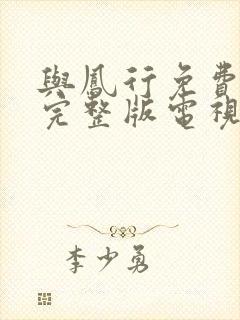 與鳳行免費
完整版電視
李少勇